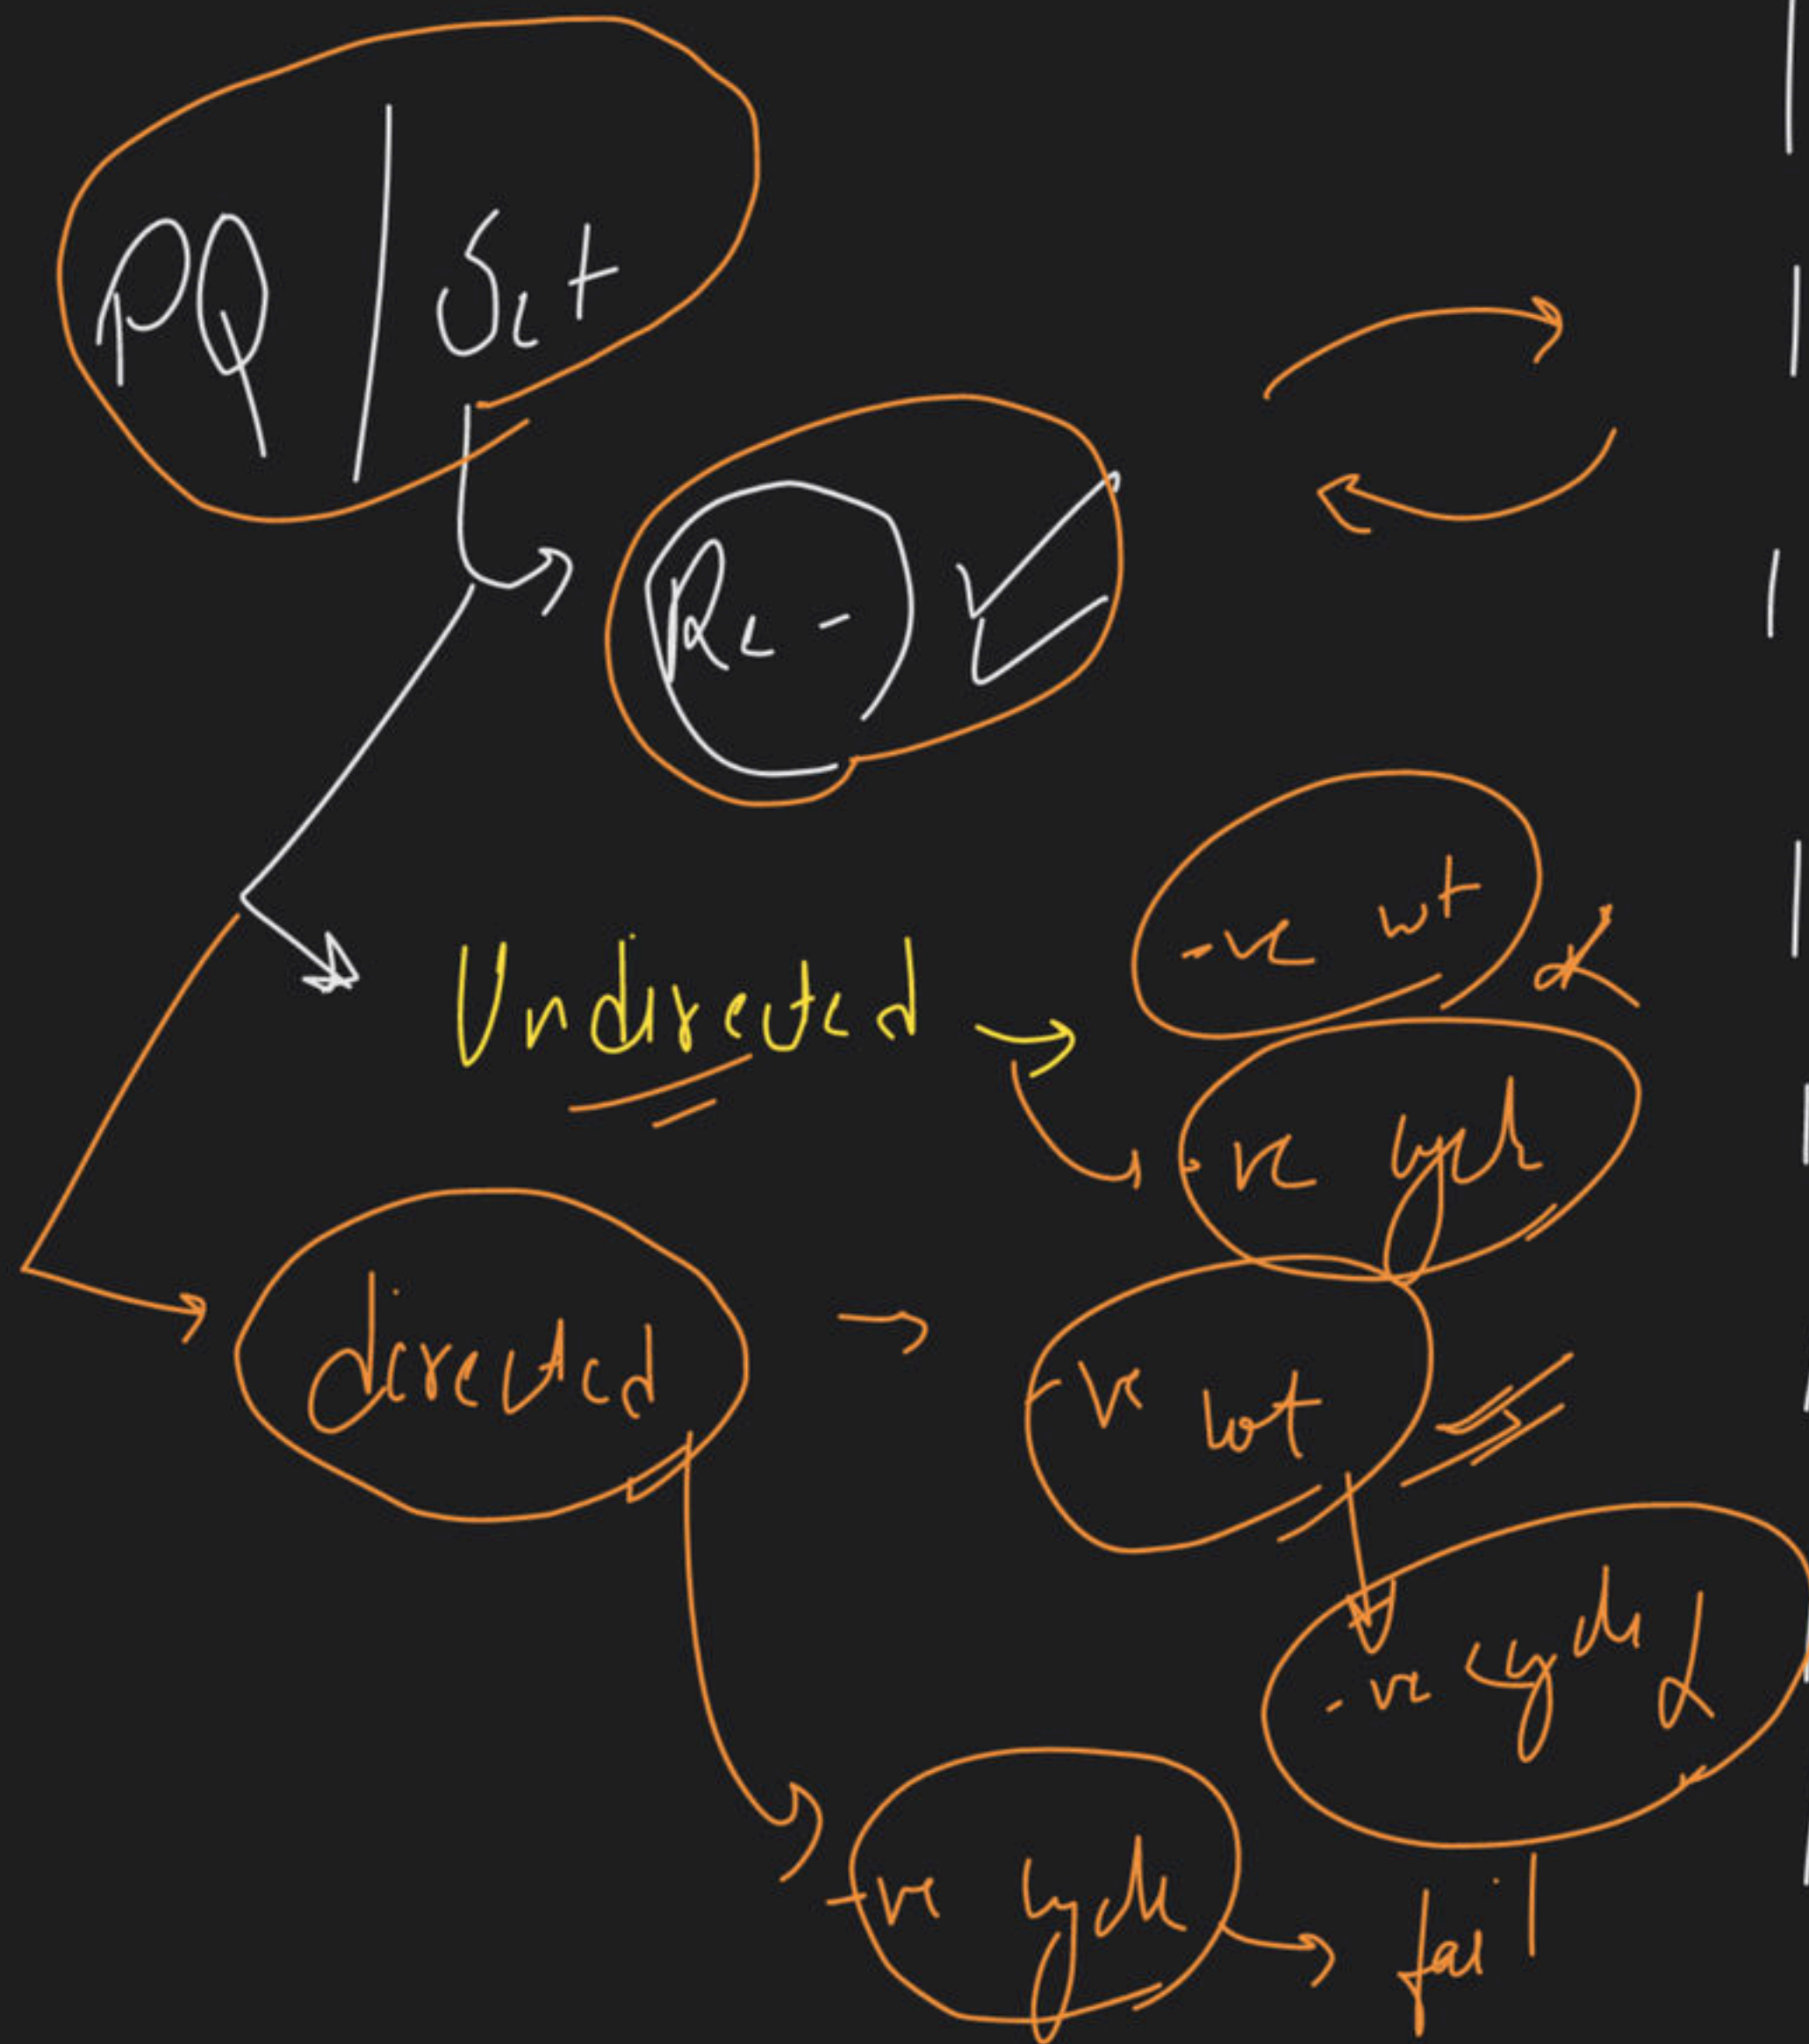 PQ | Set
Re -
Undirected
-ve wt
-ve cycle
directed
-ve wt
-ve cycle
-ve cycle
fail